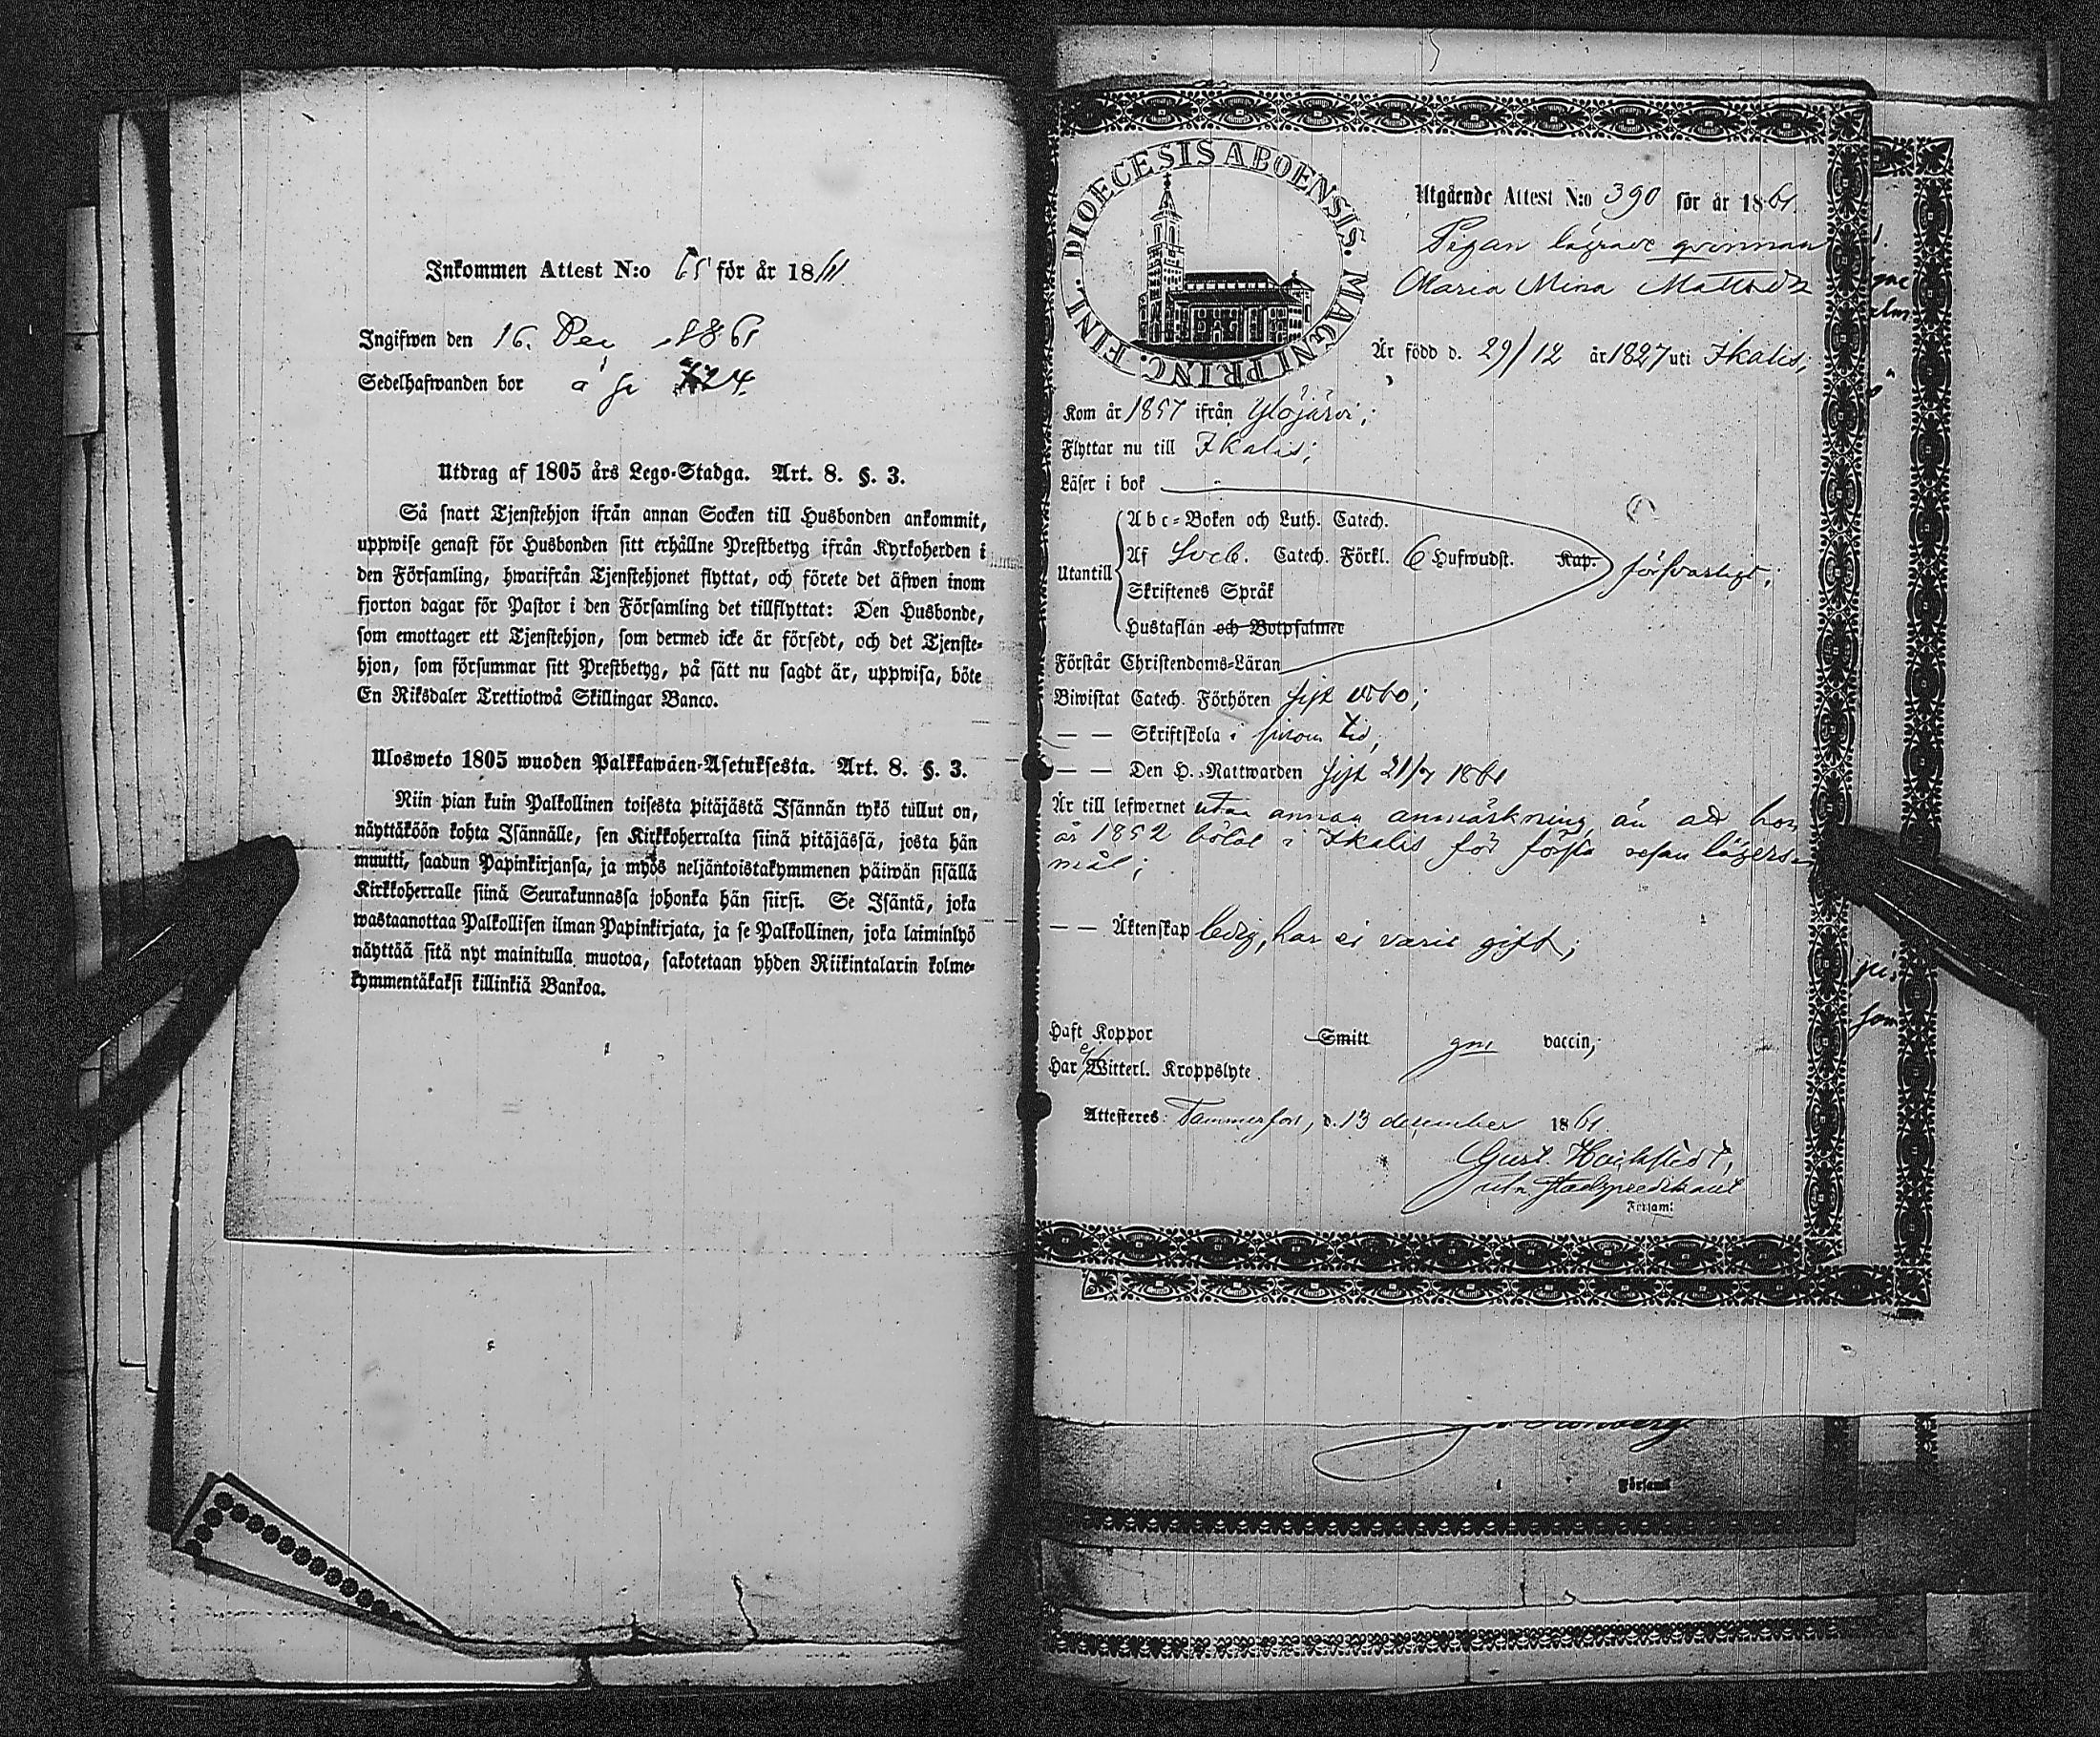 Inkommen Attest N:o 65 för år 1861.
Ingifwen den 16. Dec 1861
Sedelhafwanden bor å si 724.
Utdrag af 1805 års Lego-Stadga. Art. 8. §. 3.
Så snart Tjenstehjon ifrån annan Socken till Husbonden ankommit,
uppwise genast för Husbonden sitt erhållne Prestbetyg ifrån Kyrkoherden i
den Församling, hwarifrån Tjenstehjonet flyttat, och förete det äfwen inom
fjorton dagar för Pastor i den Församling det tillflyttat: Den Husbonde,
som emottager ett Tjenstehjon, som dermed icke är försedt, och det Tjenste-
hjon, som försummar sitt Prestbetyg, på sätt nu sagdt är, uppwisa, böte
En Riksdaler Trettiotwå Skillingar Banco.
Ulosweto 1805 wuoden Palkkawäen-Asetuksesta. Art. 8. §. 3.
Niin pian kuin Palkollinen toisesta pitäjästä Isännän tykö tullut on,
näyttäköön kohta Isännälle, sen Kirkkoherralta siinä pitäjässä, josta hän
muutti, saadun Papinkirjansa, ja myös neljäntoistakymmenen päiwän sisällä
Kirkkoherralle siinä Seurakunnassa johonka hän siirsi. Se Isäntä, joka
wastaanottaa Palkollisen ilman Papinkirjata, ja se Palkollinen, joka laiminlyö
näyttää sitä nyt mainitulla muotoa, sakotetaan yhden Riikintalarin kolme-
kymmentäkaksi killinkiä Bankoa.
DIOECESIS ABOENSIS. MAGNI PRINC. FINL.
Utgående Attest N:o 390 för år 1861.
Pigan lägrade qvinnan
Maria Mina Mattsdr
Är född d. 29/12 år 1827 uti Ikalis;
Kom år 1857 ifrån Ylöjärvi;
Flyttar nu till Ikalis;
Läser i bok
Utantill
Abc-Boken och Luth. Catech.
Af Sveb. Catech. Förkl. 6 Hufwudst. Kap. försvarligt;
Skriftenes Språk
Hustaflan och Botpsalmer
Förstår Christendoms-Läran
Biwistat Catech. Förhören sist 1860;
— — Skriftskola i sinom tid;
— — Den H. Nattwarden sist 21/7 1861
Är till lefwernet utan annan anmärkning än att hon
år 1852 bötat i Ikalis för första resan lägers-
mål;
— — Äktenskap ledig, har ej varit gift;
Haft Koppor Smitt gm vaccin;
Har ej Witterl. Kroppslyte.
Attesteres: Tammerfors, d. 13 december 1861.
Gust. Heickfledt,
Församl:
Församl